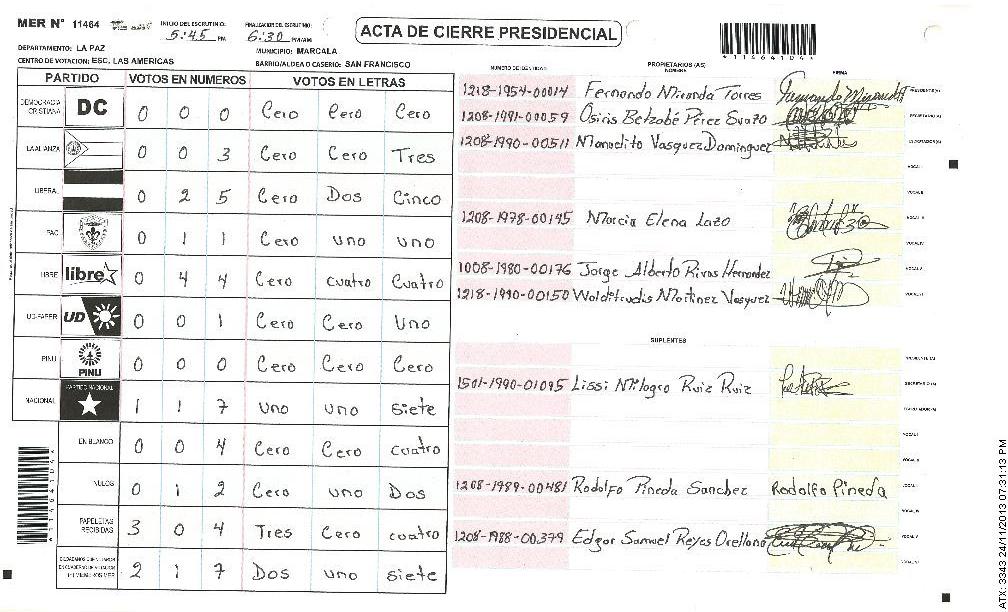 MER N° 11464
INICIO DEL ESCRUTINIO: 5:45 PM
FINALIZACION DEL ESCRUTINIO: 6:30 PM/AM
ACTA DE CIERRE PRESIDENCIAL
*11464104*
DEPARTAMENTO: LA PAZ
MUNICIPIO: MARCALA
CENTRO DE VOTACION: ESC. LAS AMERICAS
BARRIO/ALDEA O CASERIO: SAN FRANCISCO
PARTIDO VOTOS EN NUMEROS VOTOS EN LETRAS
DEMOCRACIA CRISTIANA DC 0 0 0 Cero Cero Cero
LA ALIANZA 0 0 3 Cero Cero Tres
LIBERAL 0 2 5 Cero Dos Cinco
PAC 0 1 1 Cero uno uno
LIBRE libre 0 4 4 Cero cuatro Cuatro
UD-FAPER UD 0 0 1 Cero Cero Uno
PINU PINU 0 0 0 Cero Cero Cero
NACIONAL PARTIDO NACIONAL 1 1 7 uno uno siete
EN BLANCO 0 0 4 Cero Cero cuatro
NULOS 0 1 2 Cero uno Dos
PAPELETAS RECIBIDAS 3 0 4 Tres Cero cuatro
2 1 7 Dos uno siete
*11464104*
NUMERO DE IDENTIDAD
PROPIETARIOS (AS)
NOMBRE
FIRMA
1218-1954-00014 Fernando Miranda Torres PRESIDENTE(A)
1208-1991-00059 Osiris Betzabé Pérez Suazo SECRETARIO(A)
1208-1990-00511 Manuelito Vasquez Dominguez ESCRUTADOR(A)
VOCAL I
VOCAL II
1208-1978-00145 Marcia Elena Lazo VOCAL III
VOCAL IV
1008-1980-00176 Jorge Alberto Rivas Hernandez VOCAL V
1218-1990-00150 Walditrudis Martinez Vasquez VOCAL VI
SUPLENTES
PRESIDENTE (A)
1501-1990-01095 Lissi Milagro Ruiz Ruiz SECRETARIO (A)
ESCRUTADOR(A)
VOCAL I
VOCAL II
1208-1989-00481 Rodolfo Pineda Sanchez Rodolfo Pineda
VOCAL IV
1208-1988-00379 Edgar Samuel Reyes Orellana VOCAL V
VOCAL VI
ATX: 3343 24/11/2013 07:31:13 PM